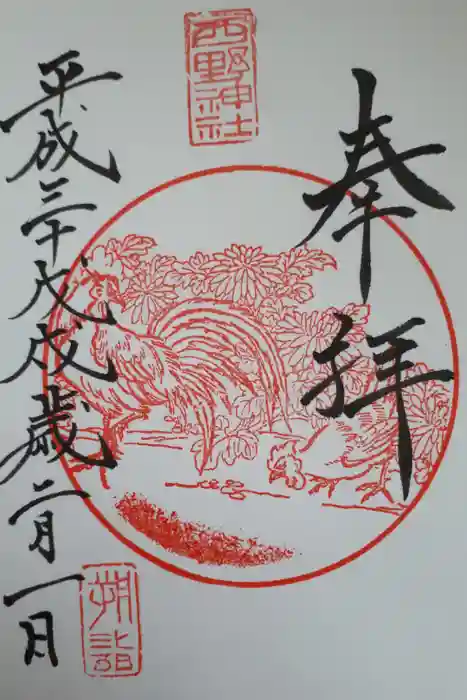 西野神社
奉拝
平成三十戊戌歳二月一日
朔詣